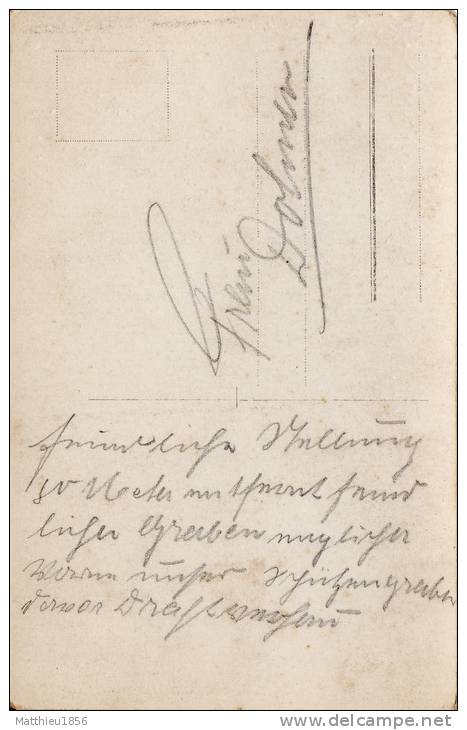 Dohmen
feindliche Stellung
50 Meter entfernt feind
licher Graben englischer
Vorne unser Schützengraben
davor Drahtverhau
Matthieu1856
www.delcampe.net